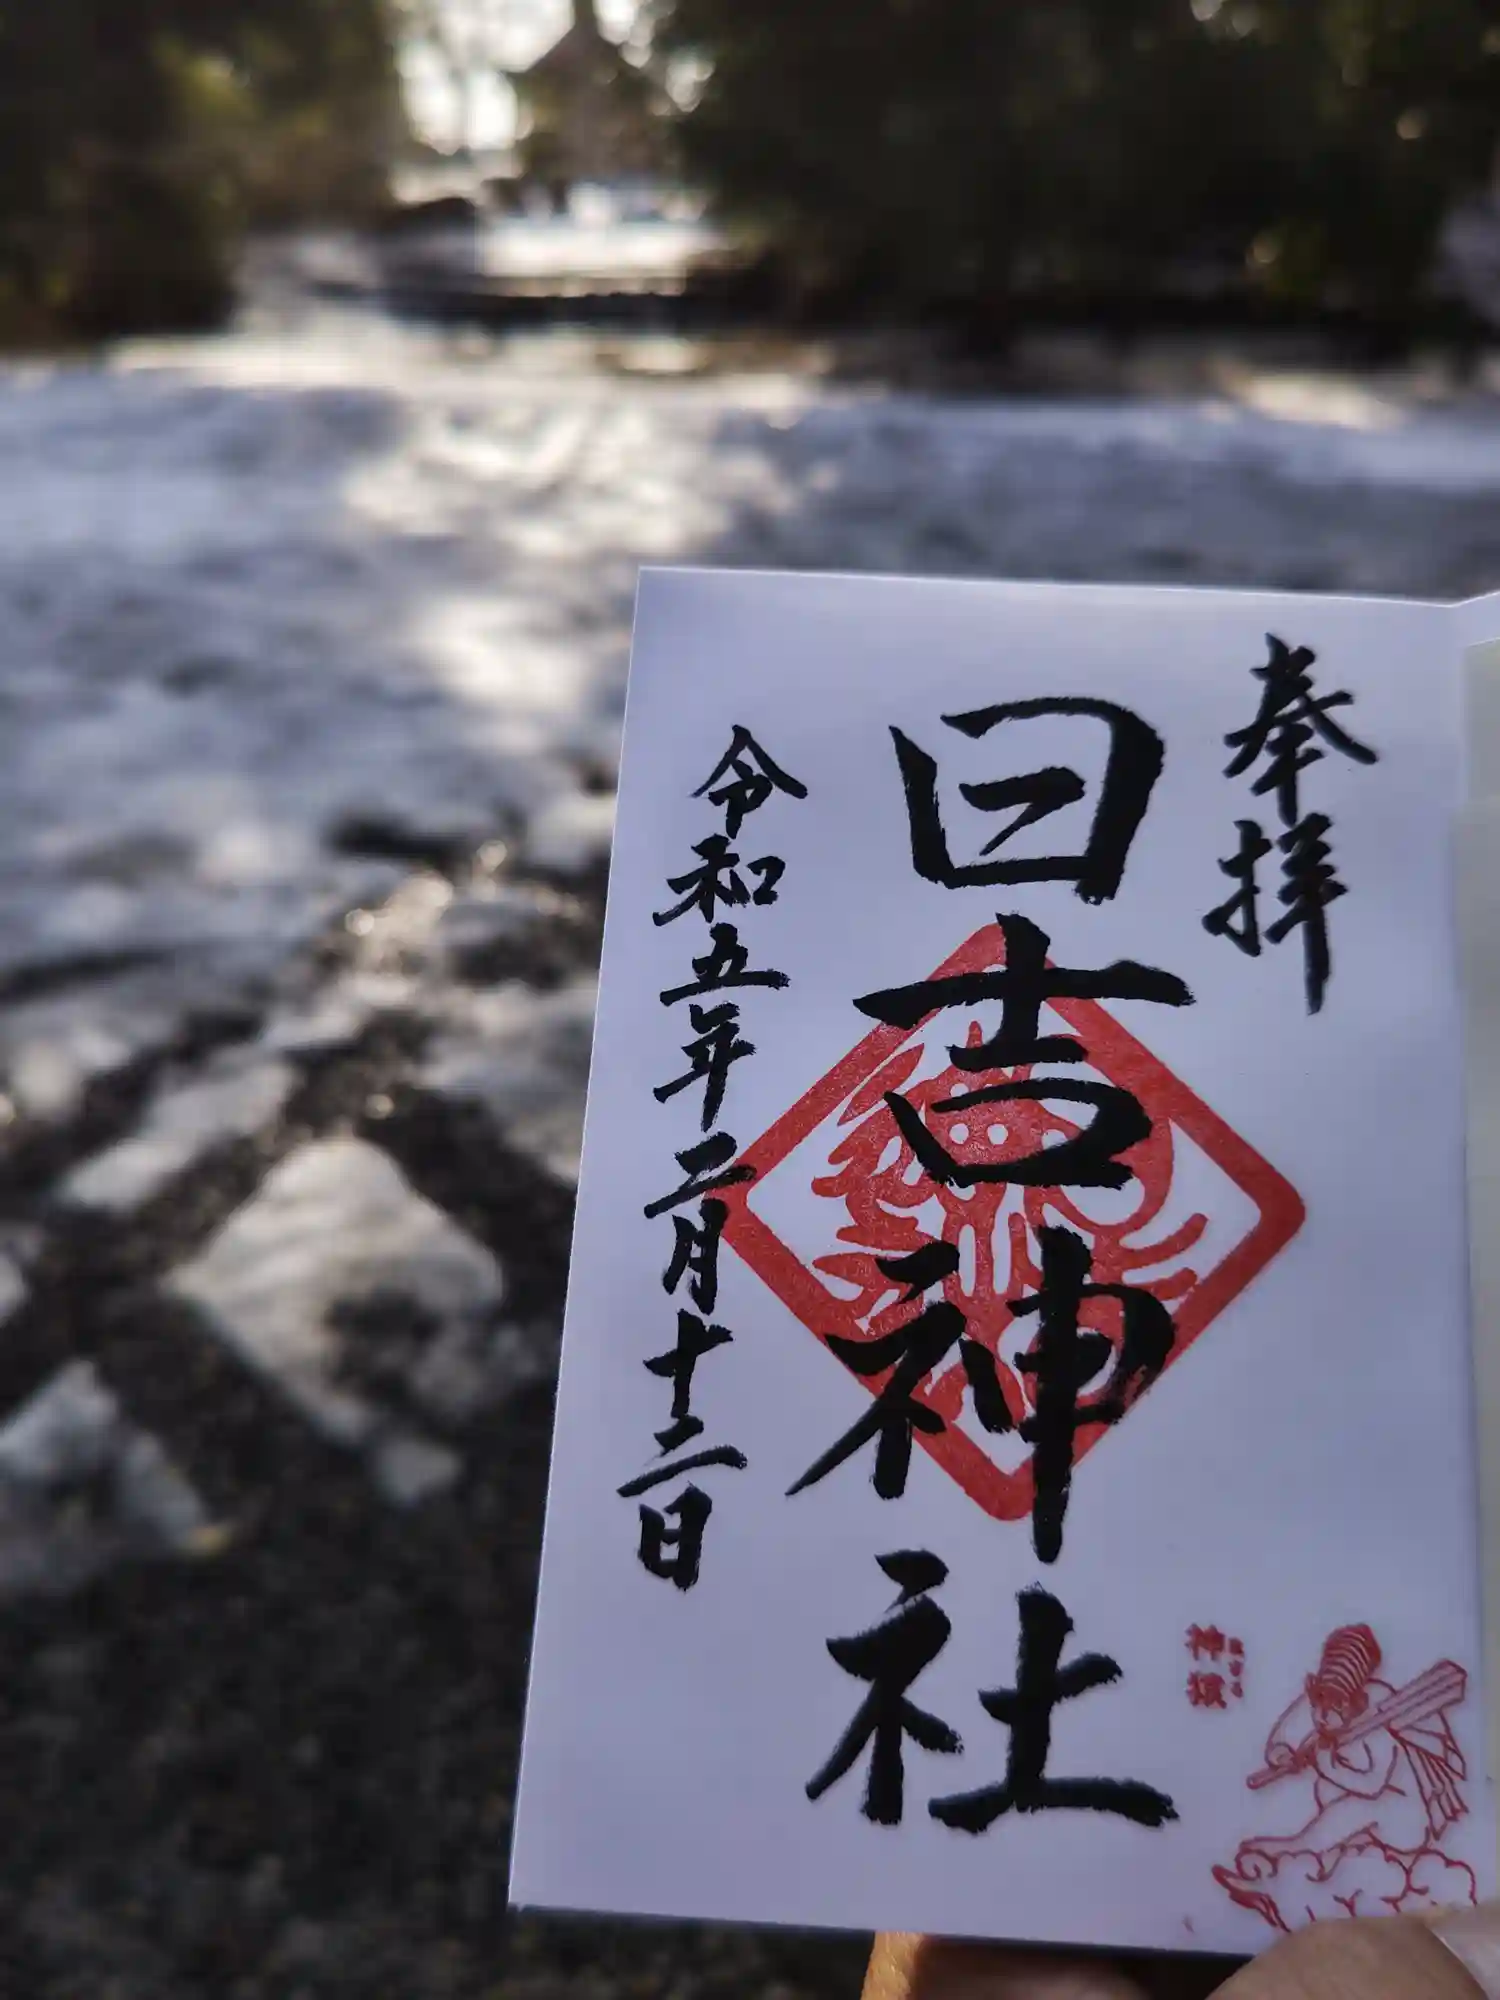 奉拝
日吉神社
令和五年二月十二日
神猿